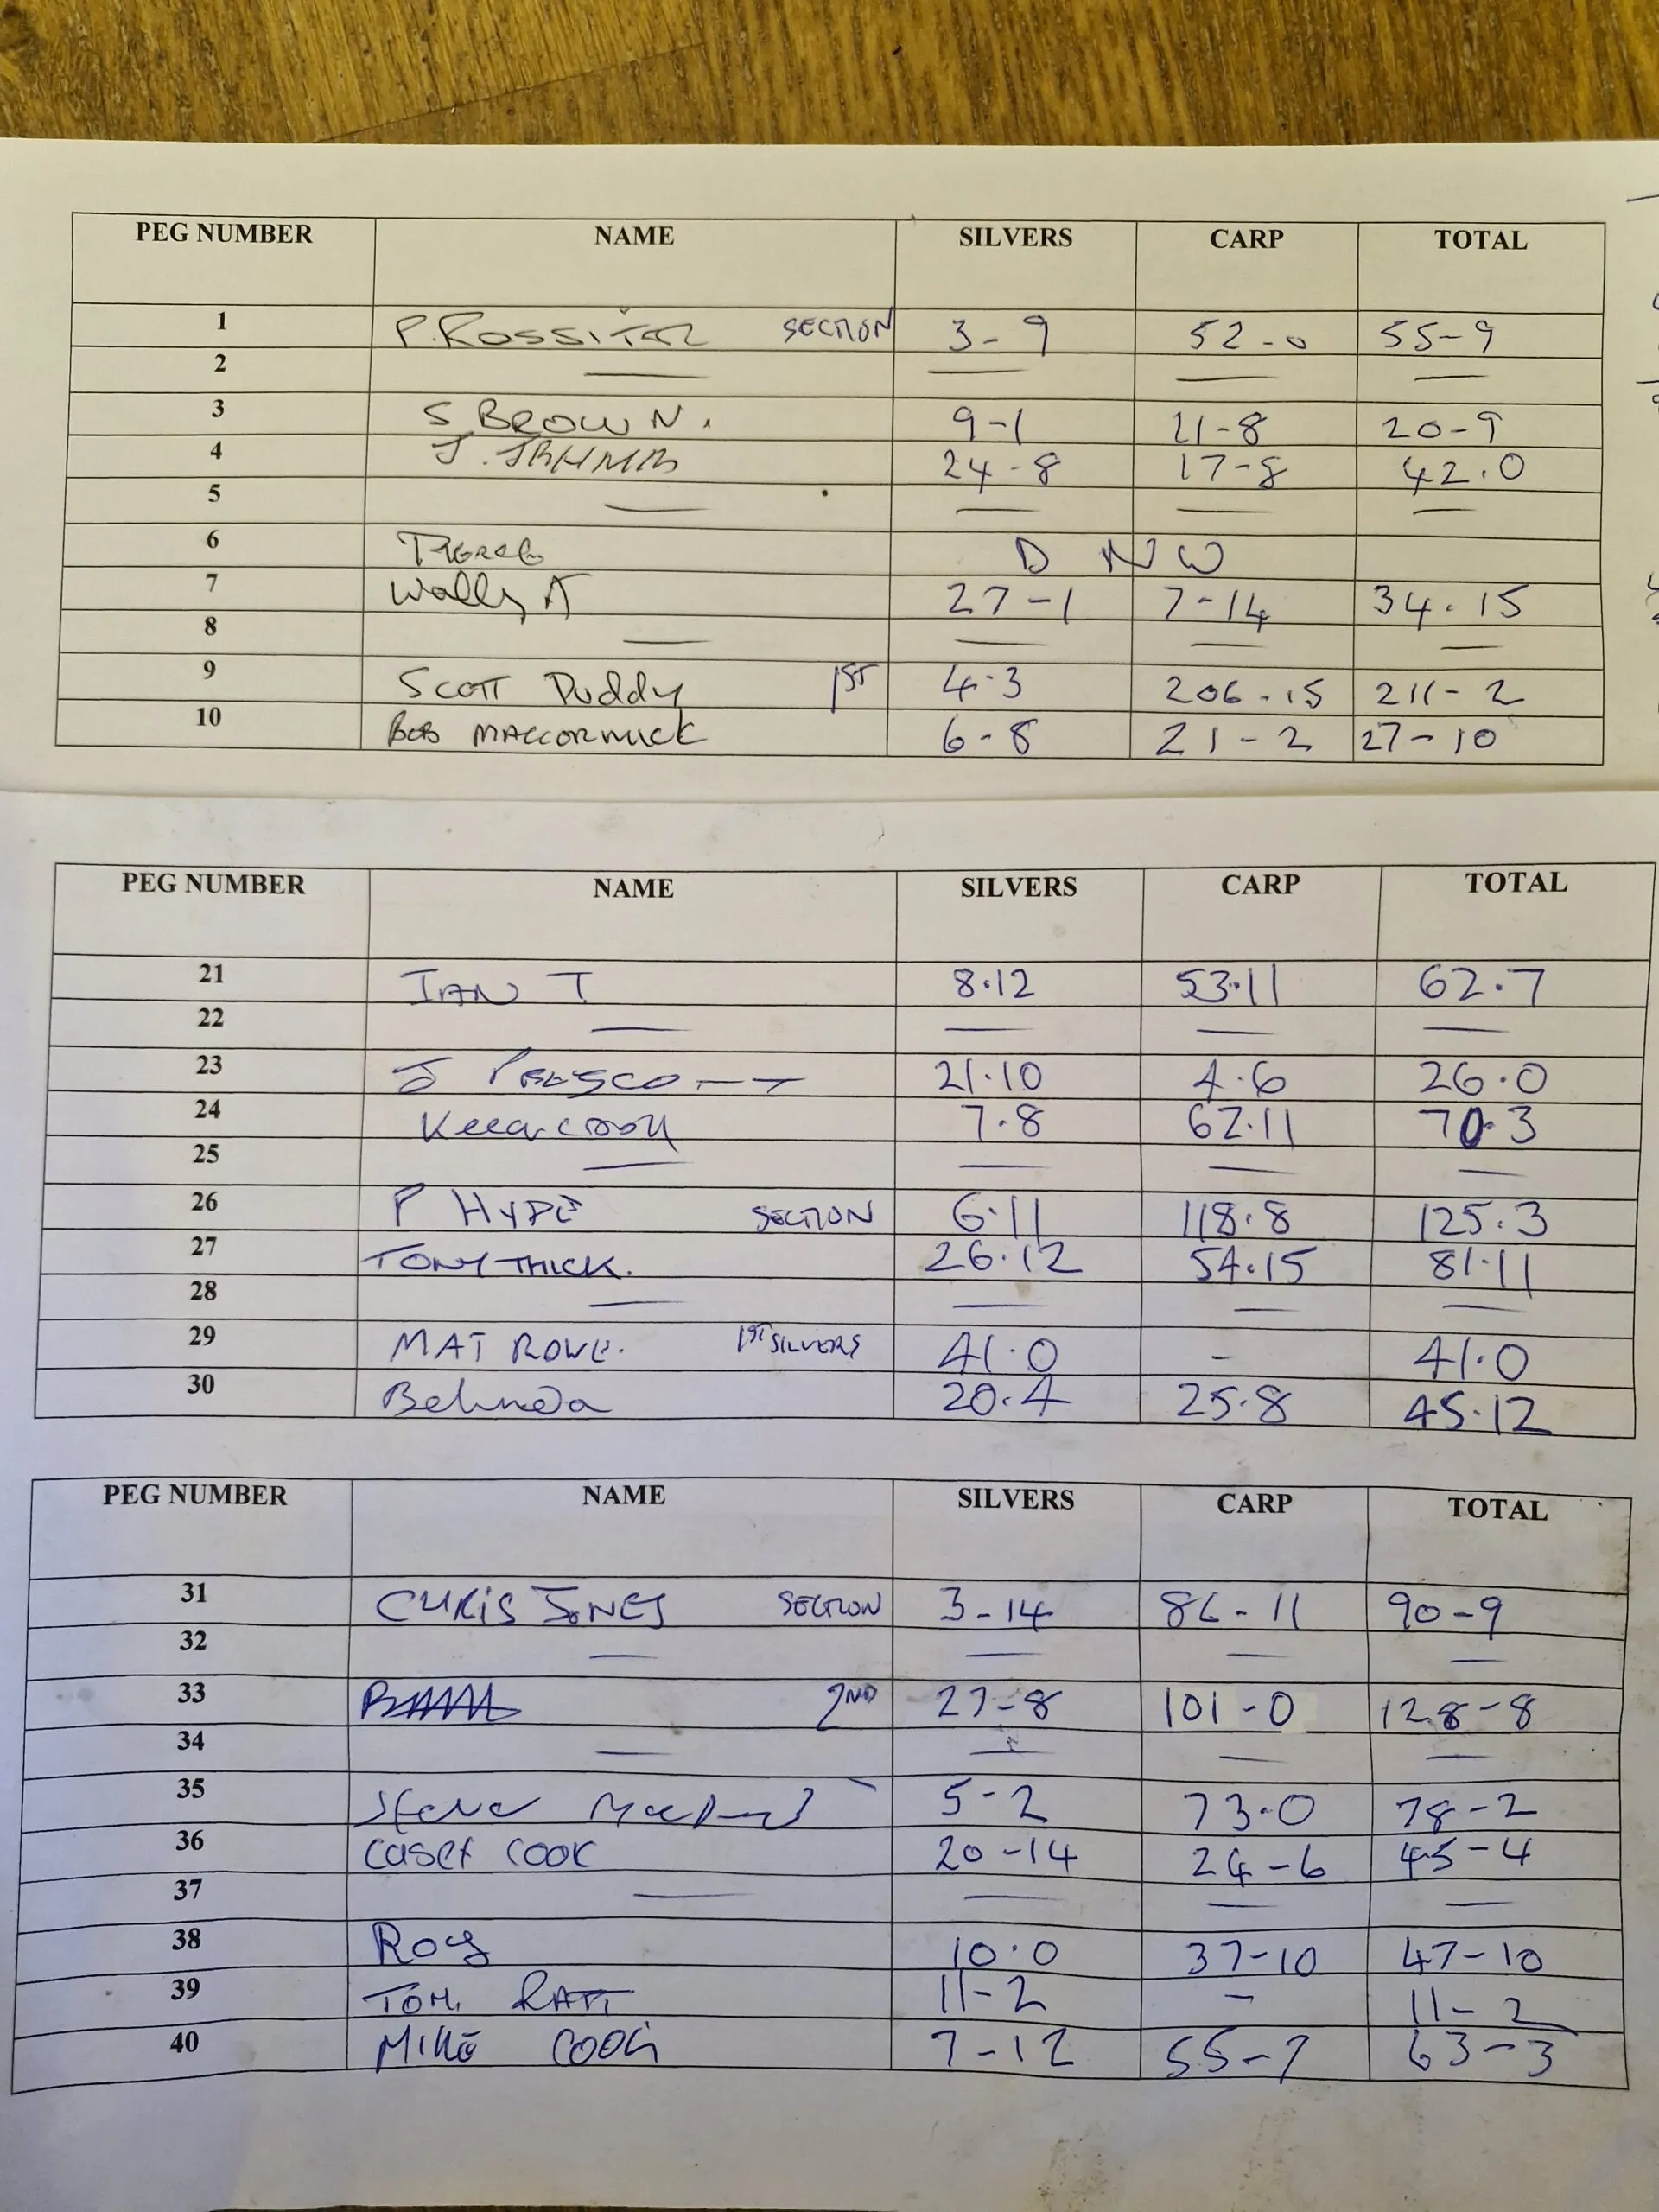 PEG NUMBER NAME SILVERS CARP TOTAL
1 P. ROSSITER SECTION 3-9 52-0 55-9
2 — — — —
3 S BROWN. 9-1 11-8 20-9
4 J. 24-8 17-8 42.0
5 — — — —
6 D N W
7 Wally A 27-1 7-14 34.15
8 — — — —
9 SCOTT PUDDY 1ST 4.3 206-15 211-2
10 BOB MACCORMICK 6-8 21-2 27-10
PEG NUMBER NAME SILVERS CARP TOTAL
21 IAN T 8.12 53.11 62.7
22 — — — —
23 J PRESCOTT 21.10 4.6 26.0
24 7.8 62.11 70.3
25 — — — —
26 P HYDE SECTION 6.11 118.8 125.3
27 TONY THICK. 26.12 54.15 81.11
28 — — — —
29 MAT ROWE. 1ST SILVERS 41.0 - 41.0
30 Belinda 20.4 25.8 45.12
PEG NUMBER NAME SILVERS CARP TOTAL
31 CHRIS JONES SECTION 3-14 86-11 90-9
32 — — — —
33 2ND 27-8 101-0 128-8
34 — — — —
35 Steve 5-2 73.0 78-2
36 CASEY COOK 20-14 24-6 45-4
37 — — — —
38 Roy 10.0 37-10 47-10
39 TOM. RATT 11-2 - 11-2
40 MIKE COOK 7-12 55-7 63-3